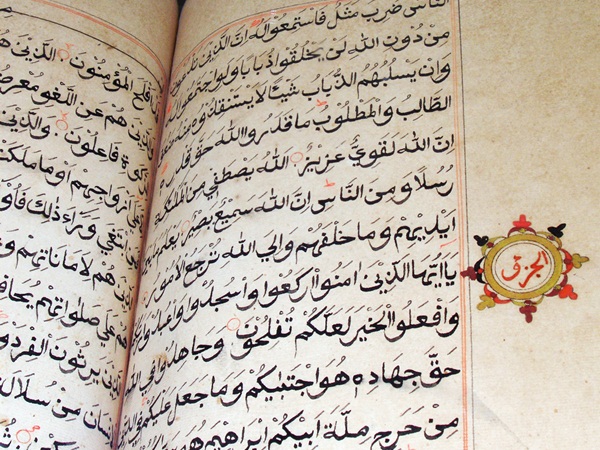 الناس ضرب مثل فاستمعوا له ان الذين تدعون
من دون الله لن يخلقوا ذبابا ولو اجتمعوا له
وان يسلبهم الذباب شيئا لا يستنقذوه منه ضعف
الطالب والمطلوب ما قدروا الله حق قدره
ان الله لقوي عزيز الله يصطفي من الملئكة
رسلا ومن الناس ان الله سميع بصير يعلم
ايديهم وما خلفهم والى الله ترجع الامور
يا ايها الذين امنوا اركعوا واسجدوا واعبدوا
وافعلوا الخير لعلكم تفلحون وجاهدوا في الله
حق جهاده هو اجتبيكم وما جعل عليكم في الدين
من حرج ملة ابيكم ابراهيم هو
افلح المؤمنون الذين
هم عن اللغو
فاعلون والذين
ازواجهم او ما ملكت
ابتغى وراء ذلك
هم لاماناتهم
على صلواتهم
يرثون الفردوس
من سلالة